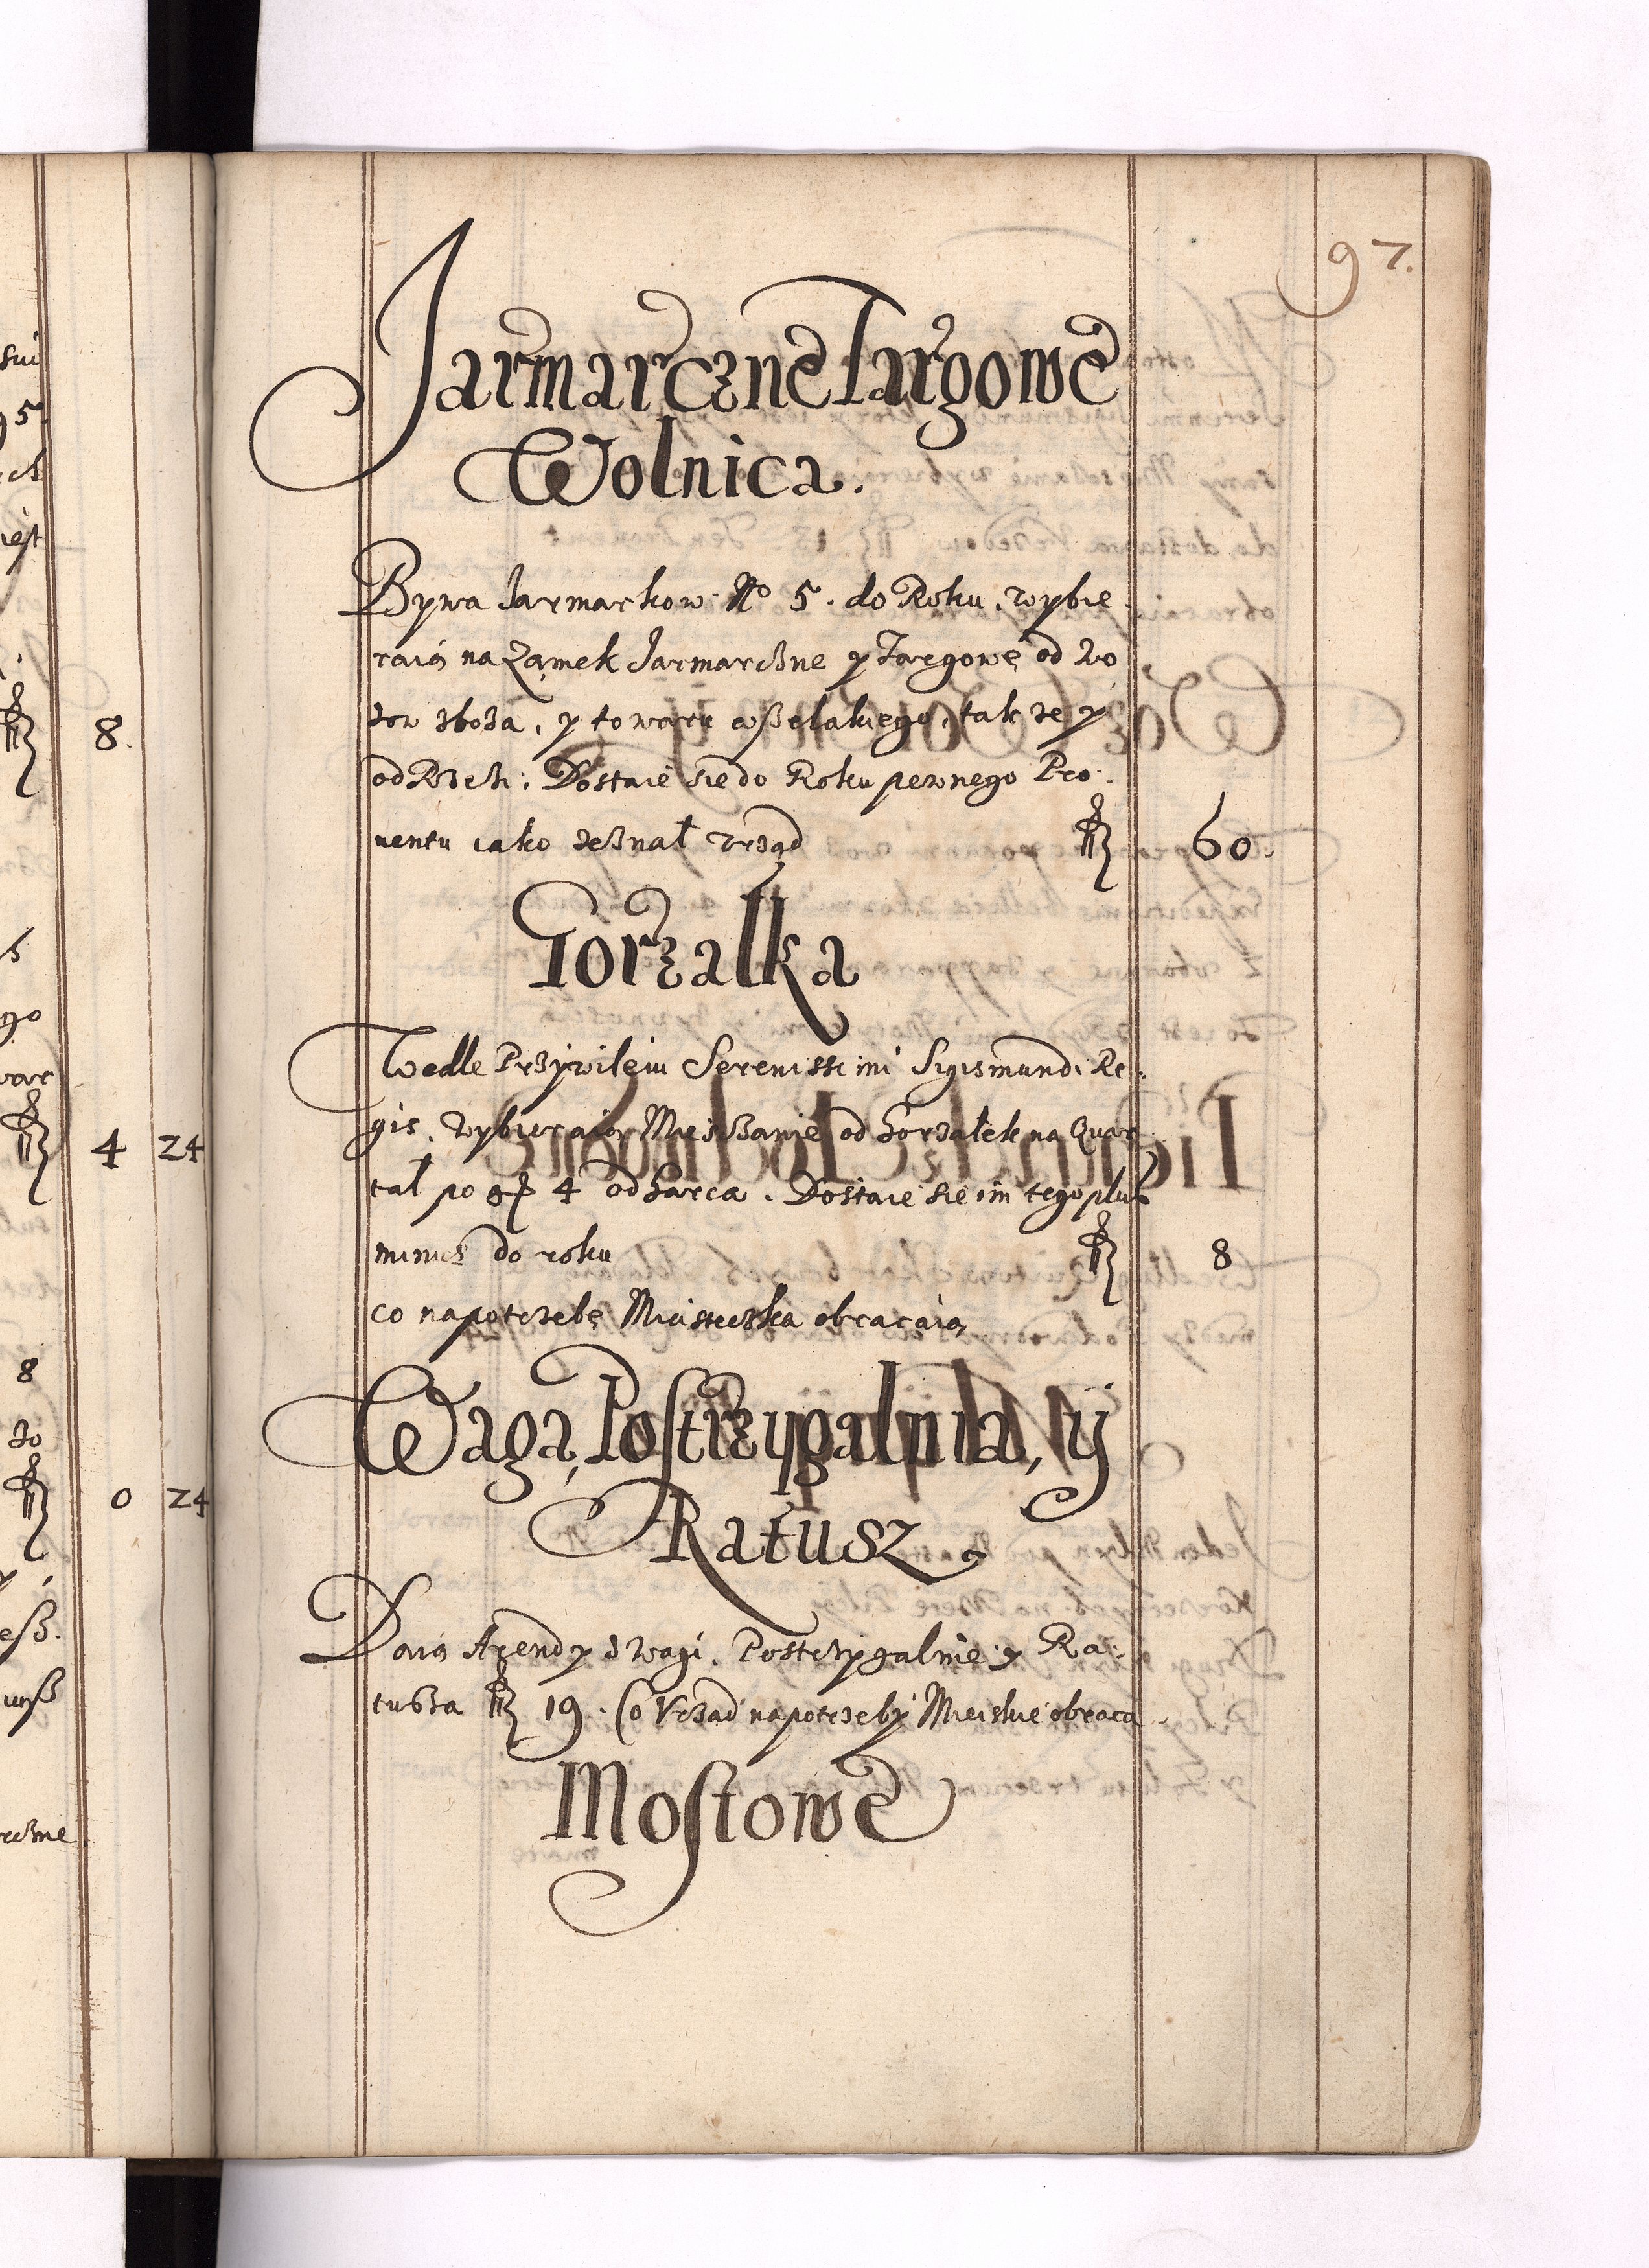 97.
Jarmarczne Targowe
Wolnica.
Bywa Jarmarkow No 5. do Roku, wybie
raią na Zamek Jarmarczne y Targowe od wo
zow zboza, y towaru wszelakiego, tak ze y
od Rzeći: Dostaie sie do Roku pewnego Pro:
uentu iako zeznał Vrząd fl 60.
Gorzalka
Wedle Przywileiu Serenissimi Sigismundi Re:
gis, wybieraią Mieszczanie od Gorzałek na Quar
tał po gr 4 od Garca. Dostaie sie im tego plus
minus do roku fl 8
co na potrzebę Miasteczka obracaią
Waga, Postrzygalnia, ÿ
Ratusz.
Daią Arendy z wagi, Postrzygalnie, y Ra:
tusza fl 19. Co Vrząd na potrzeby Mieiskie obraca.
Mostowe
8.
4 24
0 24